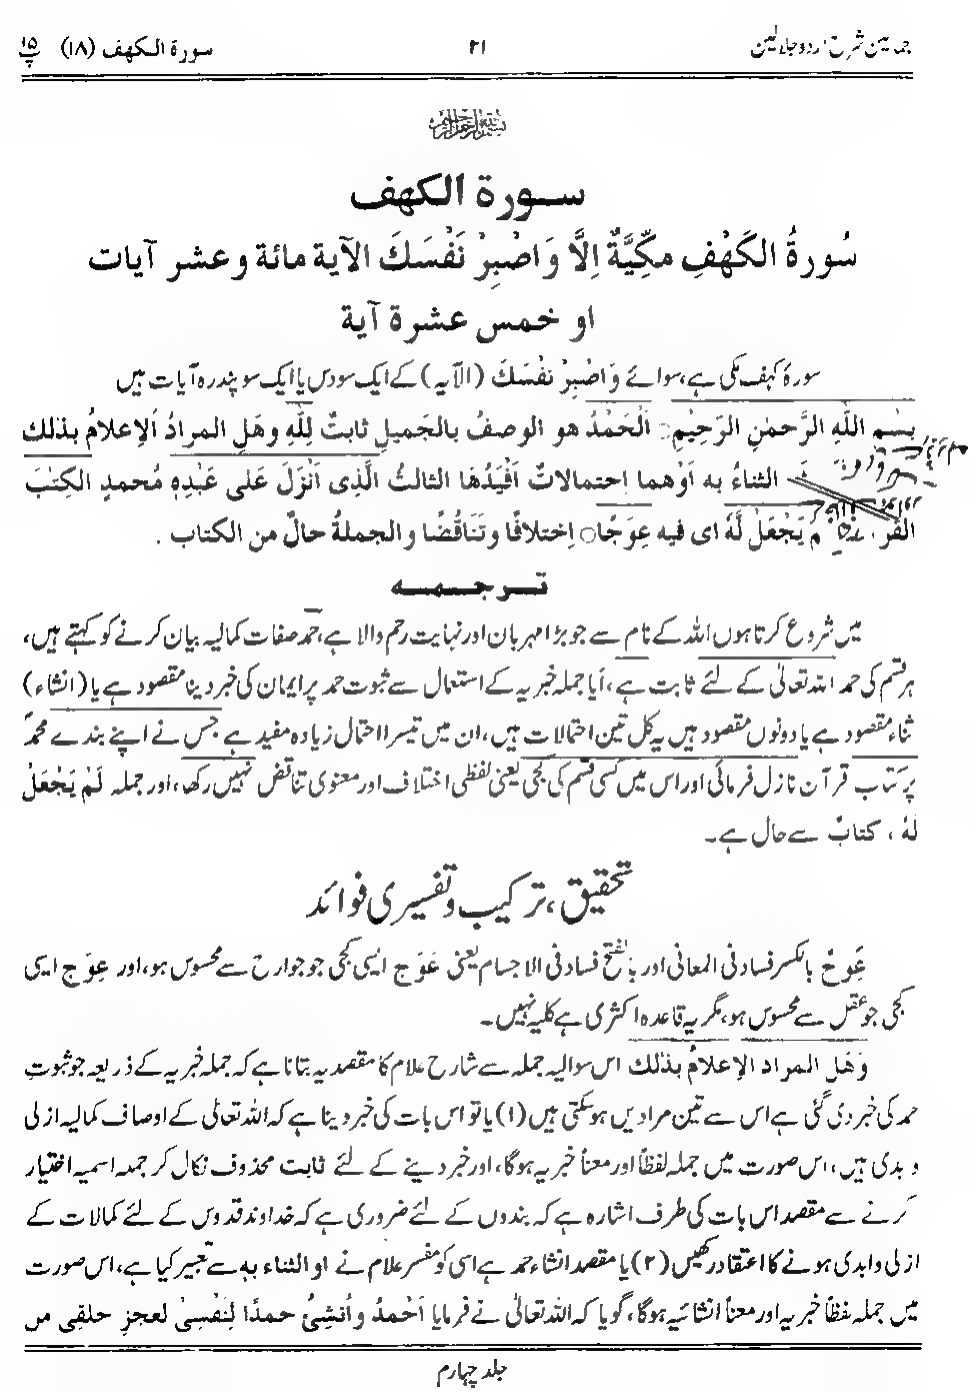 جمالین شرح اردو جلالین ۲۱ سورة الکہف (۱۸) پ ۱۵
بسم اللہ الرحمن الرحیم
سورة الکھف
سُورةُ الکَھْفِ مکِّیَّةٌ اِلَّا وَاصْبِرْ نَفْسَكَ الآیة مائة وعشر آیات
او خمس عشرة آیة
سورۂ کہف مکی ہے، سوائے وَاصْبِرْ نَفْسَكَ (الآیہ) کے ایک سو دس یا ایک سو پندرہ آیات ہیں
بِسْمِ اللّٰهِ الرَّحْمٰنِ الرَّحِیْمِ اَلْحَمْدُ هو الوصفُ بالجَمیلِ ثابتٌ لِلّٰهِ وهَلِ المرادُ اَلاِعلامُ بذلك
الثناءُ به اَوْهما اِحتمالاتٌ اَفْیَدُهَا الثالثُ الَّذِی اَنْزَلَ عَلٰی عَبْدِهٖ مُحمدٍ الکِتٰبَ
القر یَجْعَلْ لَّهٗ ای فیه عِوَجًا اِختلافًا وتَنَاقُضًا والجملةُ حالٌ من الکتاب .
تـرجـمـہ
میں شروع کرتا ہوں اللہ کے نام سے جو بڑا مہربان اور نہایت رحم والا ہے، حمد صفات کمالیہ بیان کرنے کو کہتے ہیں،
ہر قسم کی حمد اللہ تعالیٰ کے لئے ثابت ہے، آیا جملہ خبریہ کے استعمال سے ثبوت حمد پر ایمان کی خبر دینا مقصود ہے یا (انشاء)
ثناء مقصود ہے یا دونوں مقصود ہیں یہ کل تین احتمالات ہیں، ان میں تیسرا احتمال زیادہ مفید ہے جس نے اپنے بندے محمدؐ
پر کتاب قرآن نازل فرمائی اور اس میں کسی قسم کی کجی یعنی لفظی اختلاف اور معنوی تناقض نہیں رکھا، اور جملہ لَمْ یَجْعَلْ
لَهٗ، کتابٌ سے حال ہے۔
تحقیق، ترکیب وتفسیری فوائد
عِوَجٌ بالکسر فساد فی المعانی اور بالفتح فساد فی الاجسام یعنی عَوَج ایسی کجی جو جوارح سے محسوس ہو، اور عِوَج ایسی
کجی جو عقل سے محسوس ہو، مگر یہ قاعدہ اکثری ہے کلیہ نہیں۔
وَهَلِ المراد الإعلامُ بذلك اس سوالیہ جملہ سے شارح علام کا مقصد یہ بتانا ہے کہ جملہ خبریہ کے ذریعہ جو ثبوتِ
حمد کی خبر دی گئی ہے اس سے تین مرادیں ہوسکتی ہیں (۱) یا تو اس بات کی خبر دینا ہے کہ اللہ تعالیٰ کے اوصاف کمالیہ ازلی
و بدی ہیں، اس صورت میں جملہ لفظاً اور معناً خبریہ ہوگا، اور خبر دینے کے لئے ثابت محذوف نکال کر جمہ اسمیہ اختیار
کرنے سے مقصد اس بات کی طرف اشارہ ہے کہ بندوں کے لئے ضروری ہے کہ خداوند قدوس کے لئے کمالات کے
ازلی وابدی ہونے کا اعتقاد رکھیں (۲) یا مقصد انشاء حمد ہے اسی کو مفسر علام نے او الثناء به سے تعبیر کیا ہے، اس صورت
میں جملہ لفظاً خبریہ اور معناً انشائیہ ہوگا، گویا کہ اللہ تعالیٰ نے فرمایا اَحْمدُ واُنشِئُ حمدًا لِنَفْسِیْ لعجزِ خلقی من
جلد چہارم